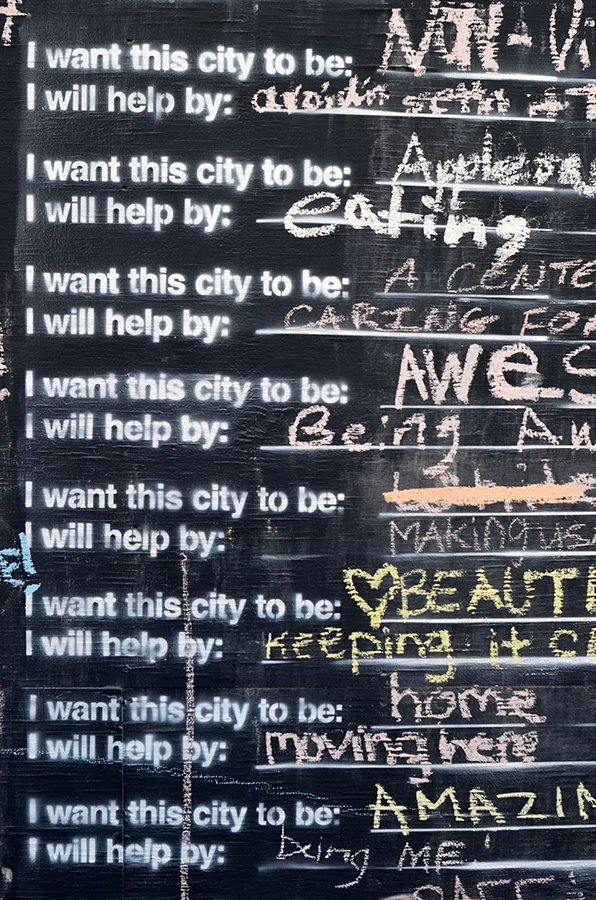 I want this city to be:
I will help by:
I want this city to be:
I will help by: eating
I want this city to be: A CENTE
I will help by: CARING FOR
I want this city to be: AWESO
I will help by: Being Aw
I want this city to be:
I will help by: MAKING
I want this city to be: ♡BEAUTI
I will help by: keeping it
I want this city to be: home
I will help by: moving here
I want this city to be: AMAZIN
I will help by: being ME